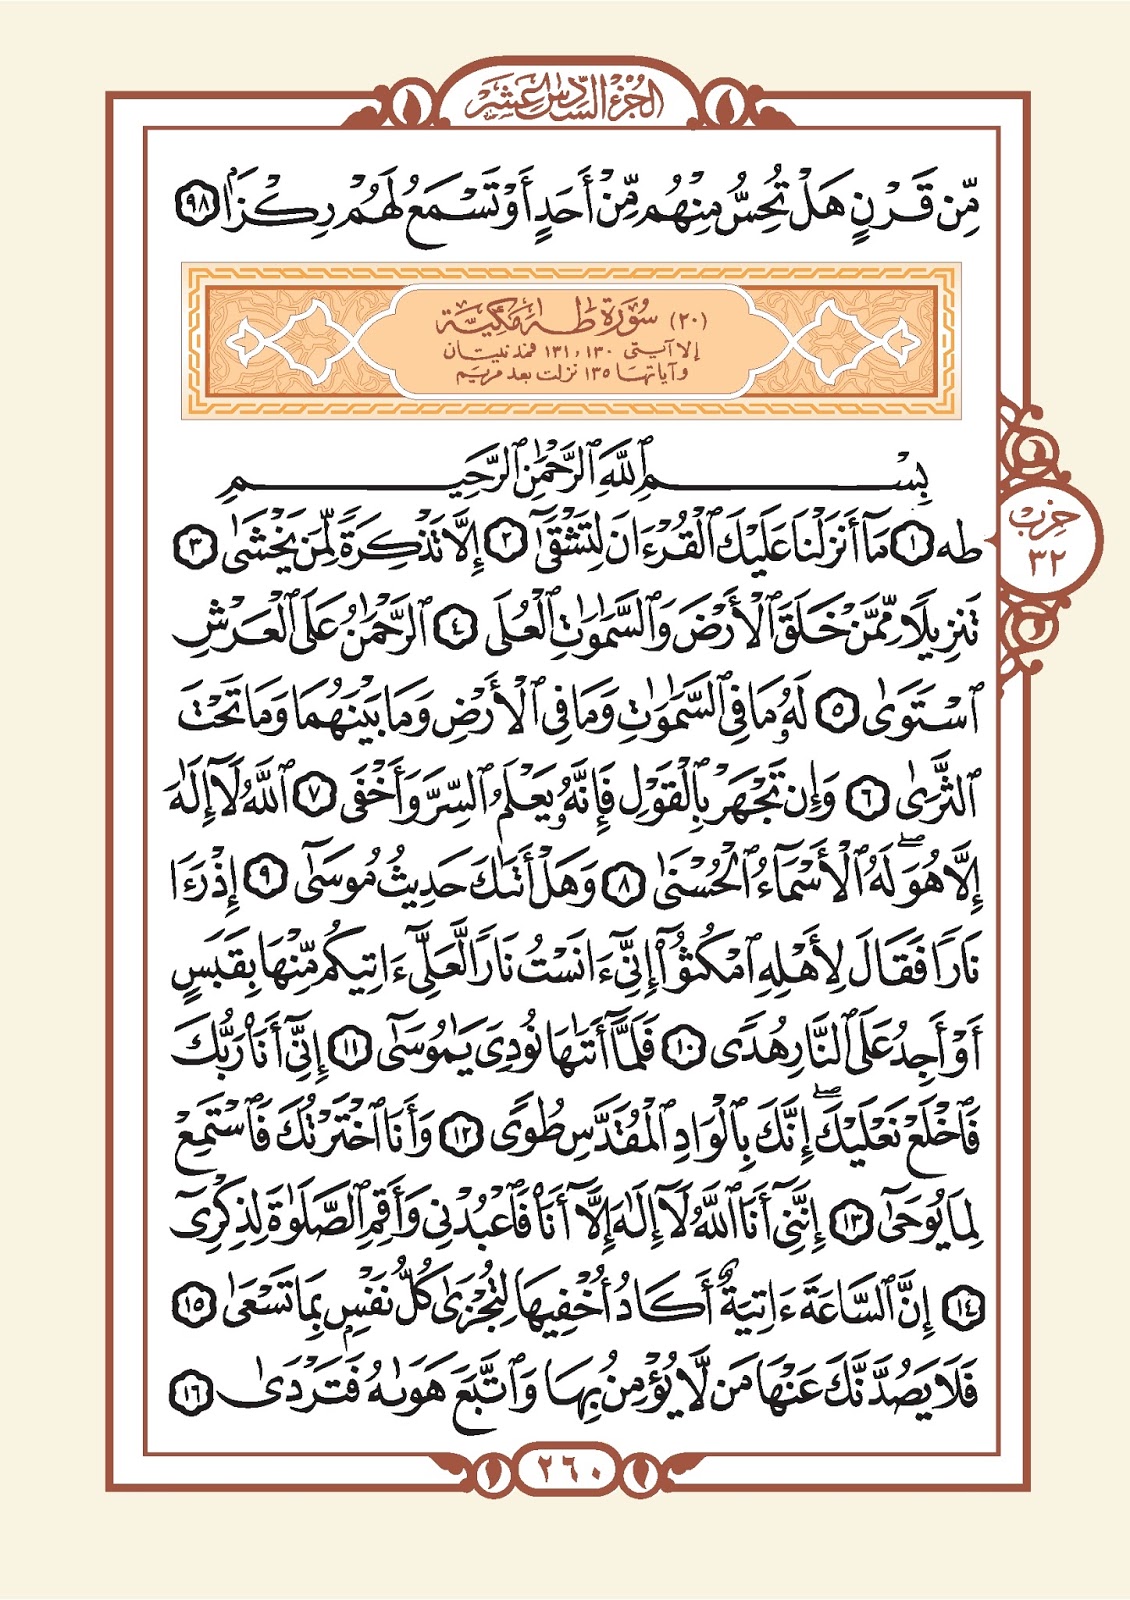 الجزء السادس عشر
مِّن قَرْنٍ هَلْ تُحِسُّ مِنْهُم مِّنْ أَحَدٍ أَوْ تَسْمَعُ لَهُمْ رِكْزَۢا ٩٨
(٢٠) سُورَة طه مَكيَّة
إلا آيتي ١٣٠ و ١٣١ فمدنيتان
وآياتها ١٣٥ نزلت بعد مريم
بِسْمِ ٱللَّهِ ٱلرَّحْمَٰنِ ٱلرَّحِيمِ
طه ١ مَآ أَنزَلْنَا عَلَيْكَ ٱلْقُرْءَانَ لِتَشْقَىٰٓ ٢ إِلَّا تَذْكِرَةً لِّمَن يَخْشَىٰ ٣
تَنزِيلًا مِّمَّنْ خَلَقَ ٱلْأَرْضَ وَٱلسَّمَٰوَٰتِ ٱلْعُلَى ٤ ٱلرَّحْمَٰنُ عَلَى ٱلْعَرْشِ
ٱسْتَوَىٰ ٥ لَهُۥ مَا فِى ٱلسَّمَٰوَٰتِ وَمَا فِى ٱلْأَرْضِ وَمَا بَيْنَهُمَا وَمَا تَحْتَ
ٱلثَّرَىٰ ٦ وَإِن تَجْهَرْ بِٱلْقَوْلِ فَإِنَّهُۥ يَعْلَمُ ٱلسِّرَّ وَأَخْفَى ٧ ٱللَّهُ لَآ إِلَٰهَ
إِلَّا هُوَۖ لَهُ ٱلْأَسْمَآءُ ٱلْحُسْنَىٰ ٨ وَهَلْ أَتَىٰكَ حَدِيثُ مُوسَىٰٓ ٩ إِذْ رَءَا
نَارًا فَقَالَ لِأَهْلِهِ ٱمْكُثُوٓا۟ إِنِّىٓ ءَانَسْتُ نَارًا لَّعَلِّىٓ ءَاتِيكُم مِّنْهَا بِقَبَسٍ
أَوْ أَجِدُ عَلَى ٱلنَّارِ هُدًى ١٠ فَلَمَّآ أَتَىٰهَا نُودِىَ يَٰمُوسَىٰٓ ١١ إِنِّىٓ أَنَا۠ رَبُّكَ
فَٱخْلَعْ نَعْلَيْكَۖ إِنَّكَ بِٱلْوَادِ ٱلْمُقَدَّسِ طُوًى ١٢ وَأَنَا ٱخْتَرْتُكَ فَٱسْتَمِعْ
لِمَا يُوحَىٰٓ ١٣ إِنَّنِىٓ أَنَا ٱللَّهُ لَآ إِلَٰهَ إِلَّآ أَنَا۠ فَٱعْبُدْنِى وَأَقِمِ ٱلصَّلَوٰةَ لِذِكْرِىٓ
١٤ إِنَّ ٱلسَّاعَةَ ءَاتِيَةٌ أَكَادُ أُخْفِيهَا لِتُجْزَىٰ كُلُّ نَفْسٍۭ بِمَا تَسْعَىٰ ١٥
فَلَا يَصُدَّنَّكَ عَنْهَا مَن لَّا يُؤْمِنُ بِهَا وَٱتَّبَعَ هَوَىٰهُ فَتَرْدَىٰ ١٦
حزب
٣٢
٢٦٠